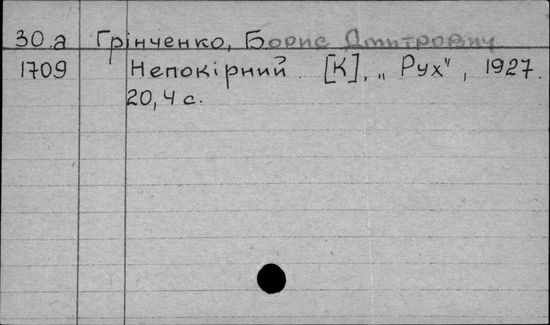 30.а Грінченко, Борис Дмитрович
1709 Непокірний. [К], „Рух", 1927.
20,4 с.